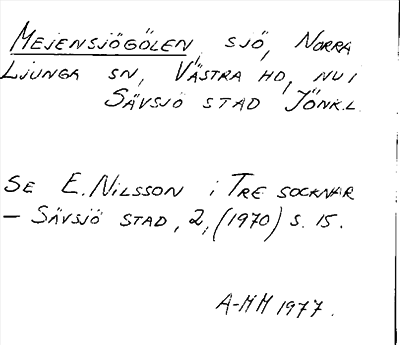 MEJENSJÖGÖLEN, SJÖ, NORRA
LJUNGA SN, VÄSTRA HD, NU I
SÄVSJÖ STAD JÖNK.L.
SE E. NILSSON i TRE SOCKNAR
– SÄVSJÖ STAD, 2, (1970) S. 15.
A-MM 1977.